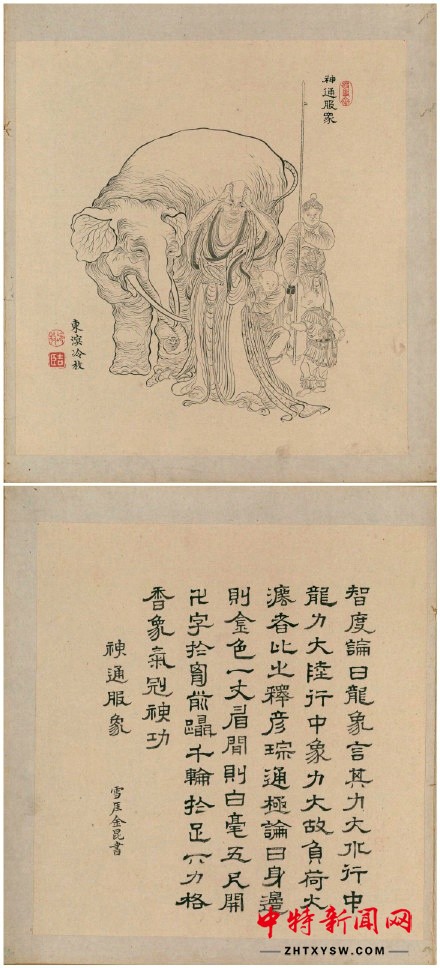 神通服象
東溟冷枚
智度論曰龍象言其力大水行中
龍力大陸行中象力大故負荷大
灋者比之釋彥琮通極論曰身邊
則金色一丈眉間則白毫五尺開
卍字扵胷前躡千輪扵足下力格
香象氣冠神功
神通服象
雪厓金昆書
中特新闻网
ZHTXYSW.COM